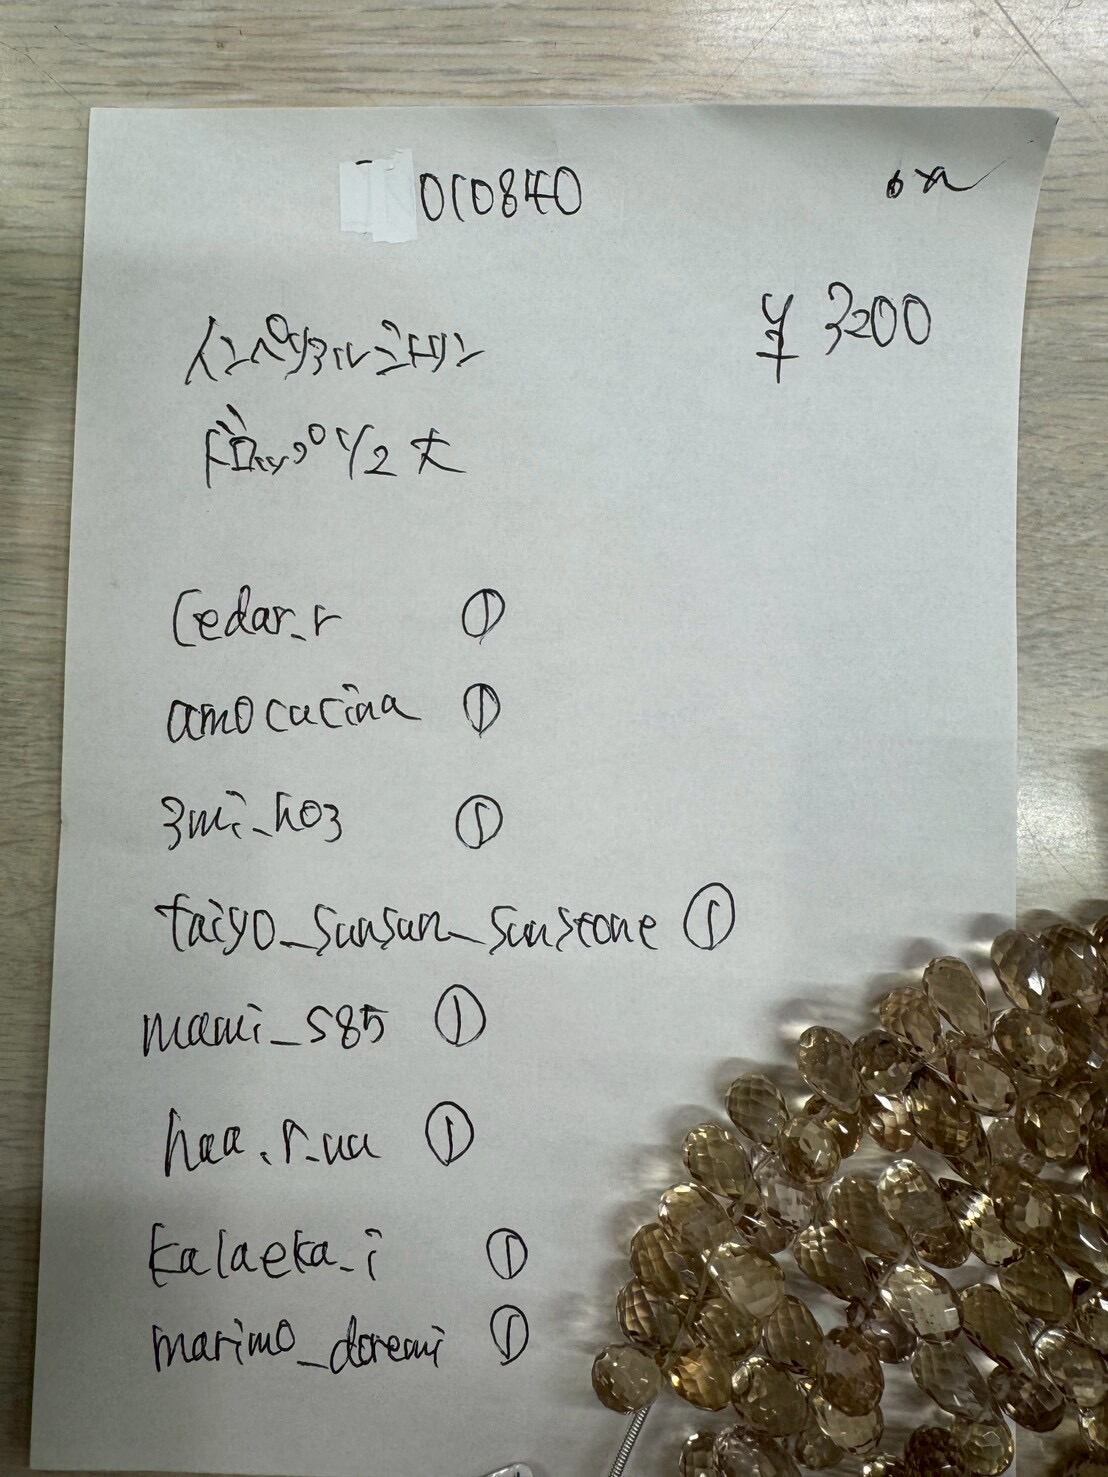 010840
¥3200
インペリアルシトリン
ドロップ 1/2 大
Cedar_r ①
amocucina ①
3mi_ho3 ①
taiyo_sunsun_sunstone ①
mami_s85 ①
haa.r_uu ①
kalaeka_i ①
marimo_doremi ①